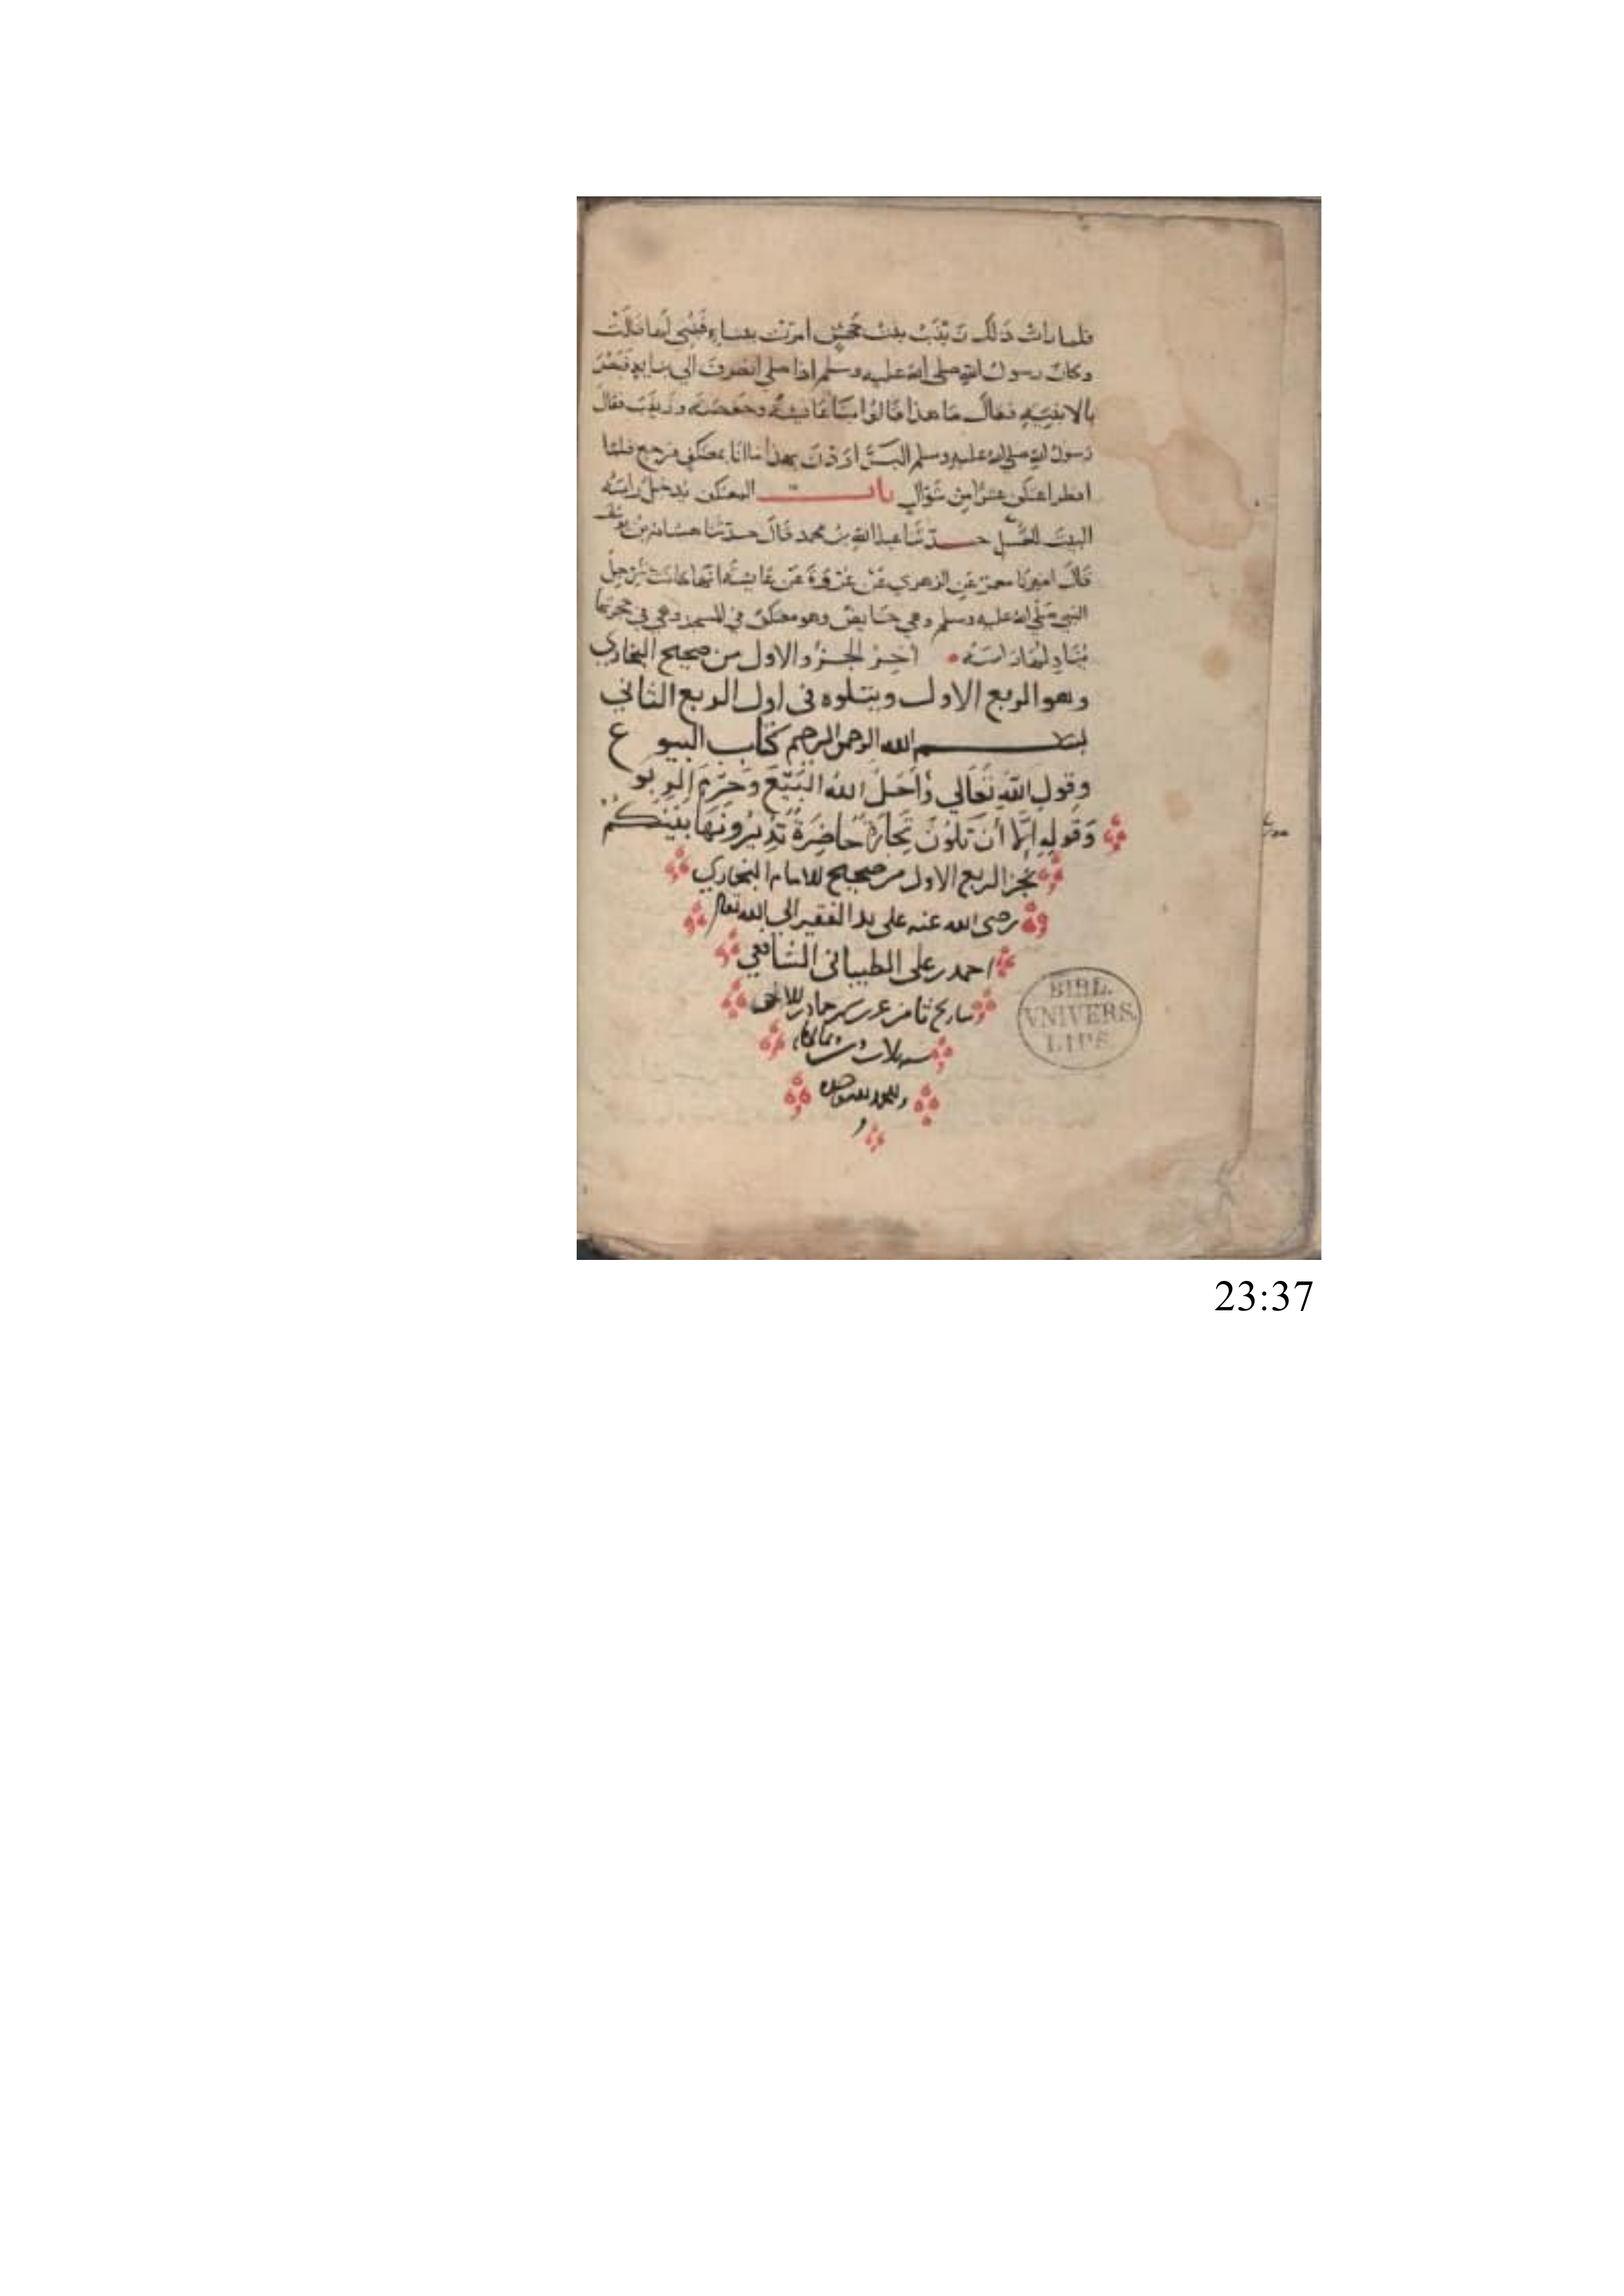 فلما رات ذلك زينب بنت جحش امرت ببناء فبني لها قالت
وكان رسول الله صلى الله عليه وسلم اذا صلى انصرف الى بنايه فبصر
بالابنية فقال ما هذا قالوا بنا عائشة وحفصة وزينب فقال
رسول الله صلى الله عليه وسلم البر اردن بهذا ما انا بمعتكف فرجع فلما
افطر اعتكف عشرا من شوال باب المعتكف يدخل راسه
البيت للغسل حدثنا عبد الله بن محمد قال حدثنا هشام بن يوسف
قال اخبرنا معمر عن الزهري عن عروة عن عائشة انها كانت ترجل
النبي صلى الله عليه وسلم وهي حايض وهو معتكف في المسجد وهي في حجرتها
يناولها راسه اخر الجزء الاول من صحيح البخاري
وهو الربع الاول ويتلوه في اول الربع الثاني
بسم الله الرحمن الرحيم كتاب البيوع
وَقول اللهِ تَعَالي وَأَحَلَّ اللهُ البَيْعَ وَحَرَّمَ الربو
وَقَولِهِ إلّا أنْ تَكُونَ تِجَارَةً حَاضِرَةً تُدِيرُونَهَا بَيْنَكُمْ
نجز الربع الاول من صحيح الامام البخاري
رضى الله عنه على يد الفقير الى الله تعالى
احمد بن على الطيبانى الشافعي
BIBL.
VNIVERS.
LIPS.
23:37